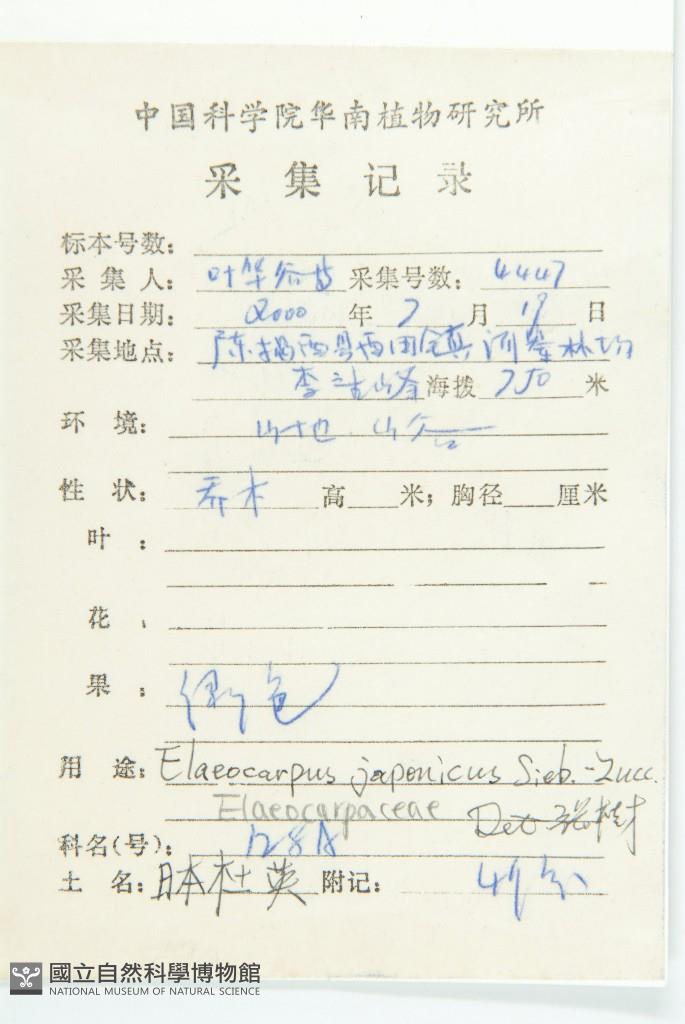 中国科学院华南植物研究所
采集记录
标本号数:
采集人: 叶华谷等 采集号数: 4447
采集日期: 2000 年 7 月 19 日
采集地点: 广东揭西县西田镇河輋林场
李 山 海拨 750 米
环境: 山地 山谷
性状: 乔木 高 米; 胸径 厘米
叶:
花:
果: 绿色
用途: Elaeocarpus japonicus Sieb. - Zucc.
Elaeocarpaceae Det 张
科名(号): 128A
土名: 日本杜英 附记: 4份
國立自然科學博物館
NATIONAL MUSEUM OF NATURAL SCIENCE